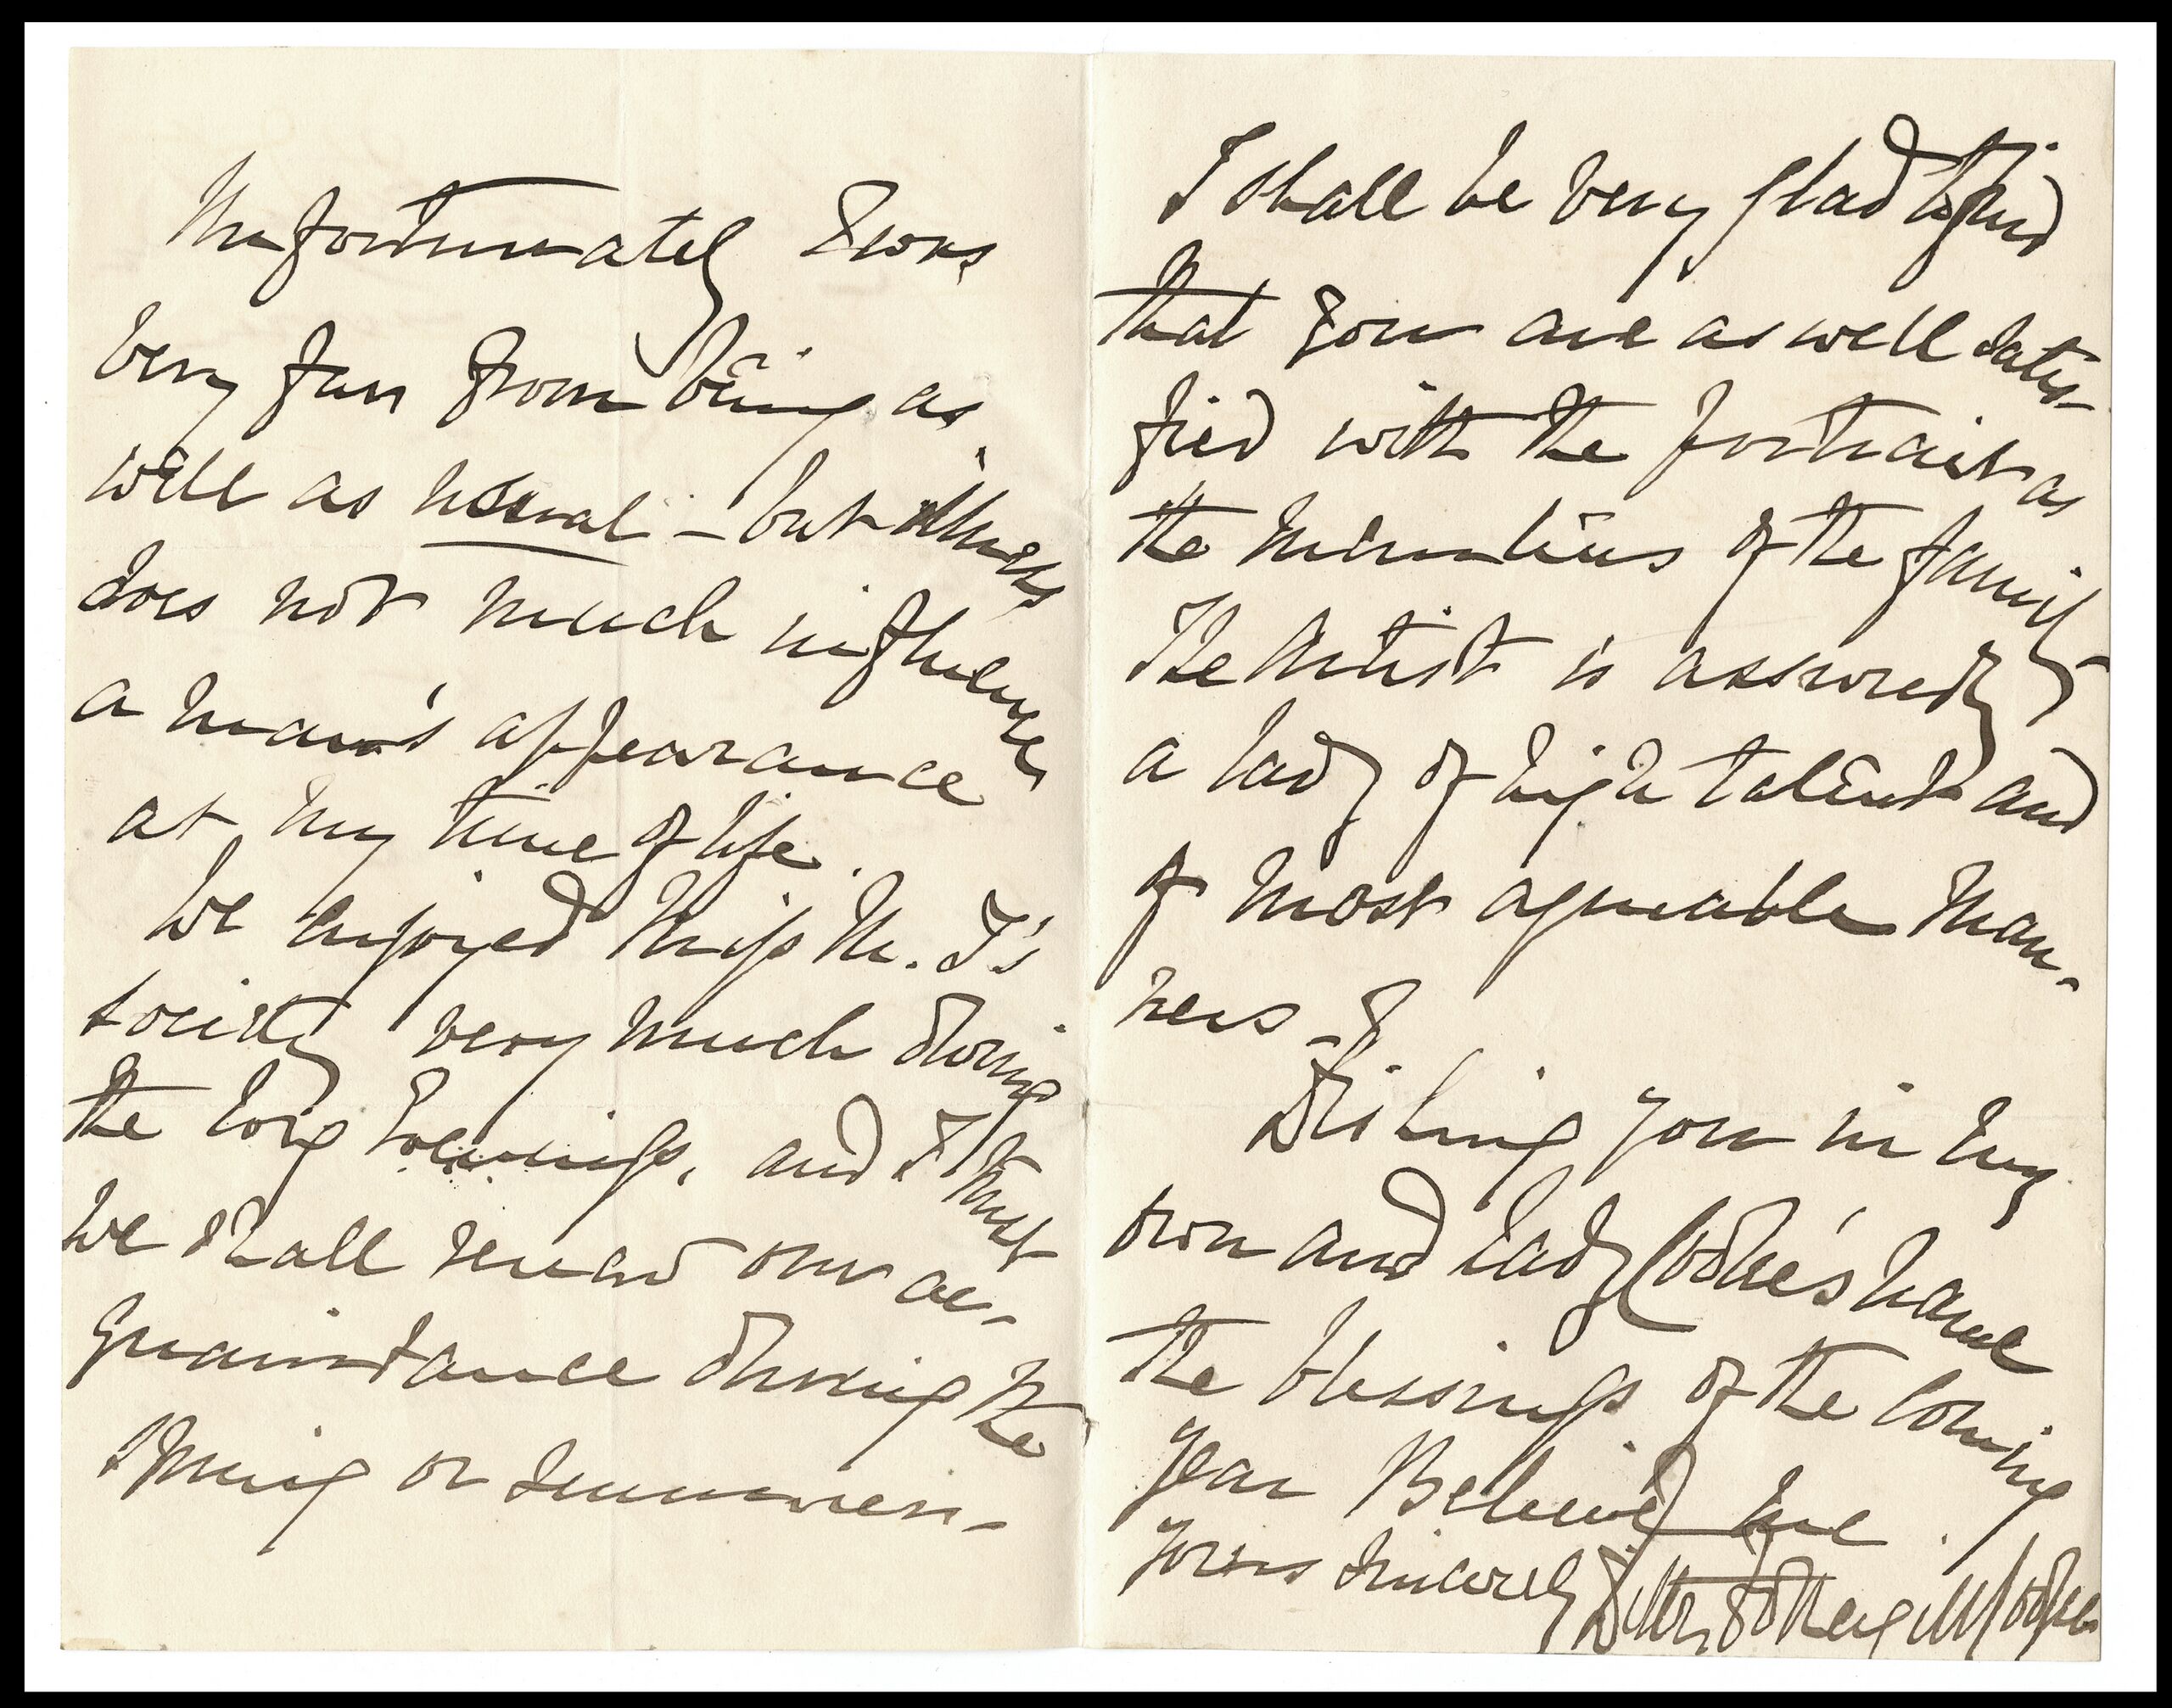 Unfortunately I was
very far from being as
well as usual - but illness
does not much influence
a man's appearance
at my time of life.
We enjoyed Miss M. T's
society very much during
the long Evenings, and I trust
we shall renew our ac-
quaintance during the
Spring or Summer -
I shall be very glad to find
that you are as well satis-
fied with the portrait as
the members of the family
The Artist is assuredly
a lady of high talent and
of most agreeable man-
ners -
Wishing you in my
own and Lady Cooke's name
the blessings of the Coming
year Believe me
yours sincerely Fothergill Cooke